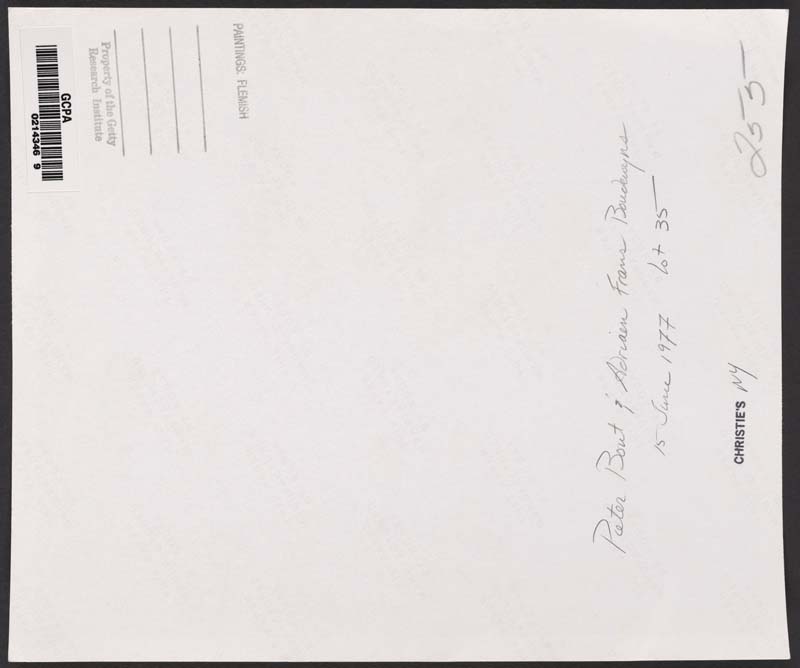 GCPA
0214346 9
Property of the Getty
Research Institute
PAINTINGS: FLEMISH
Pieter Bout & Adriaen Frans Boudewyns
15 June 1977 lot 35
CHRISTIE'S NY
255